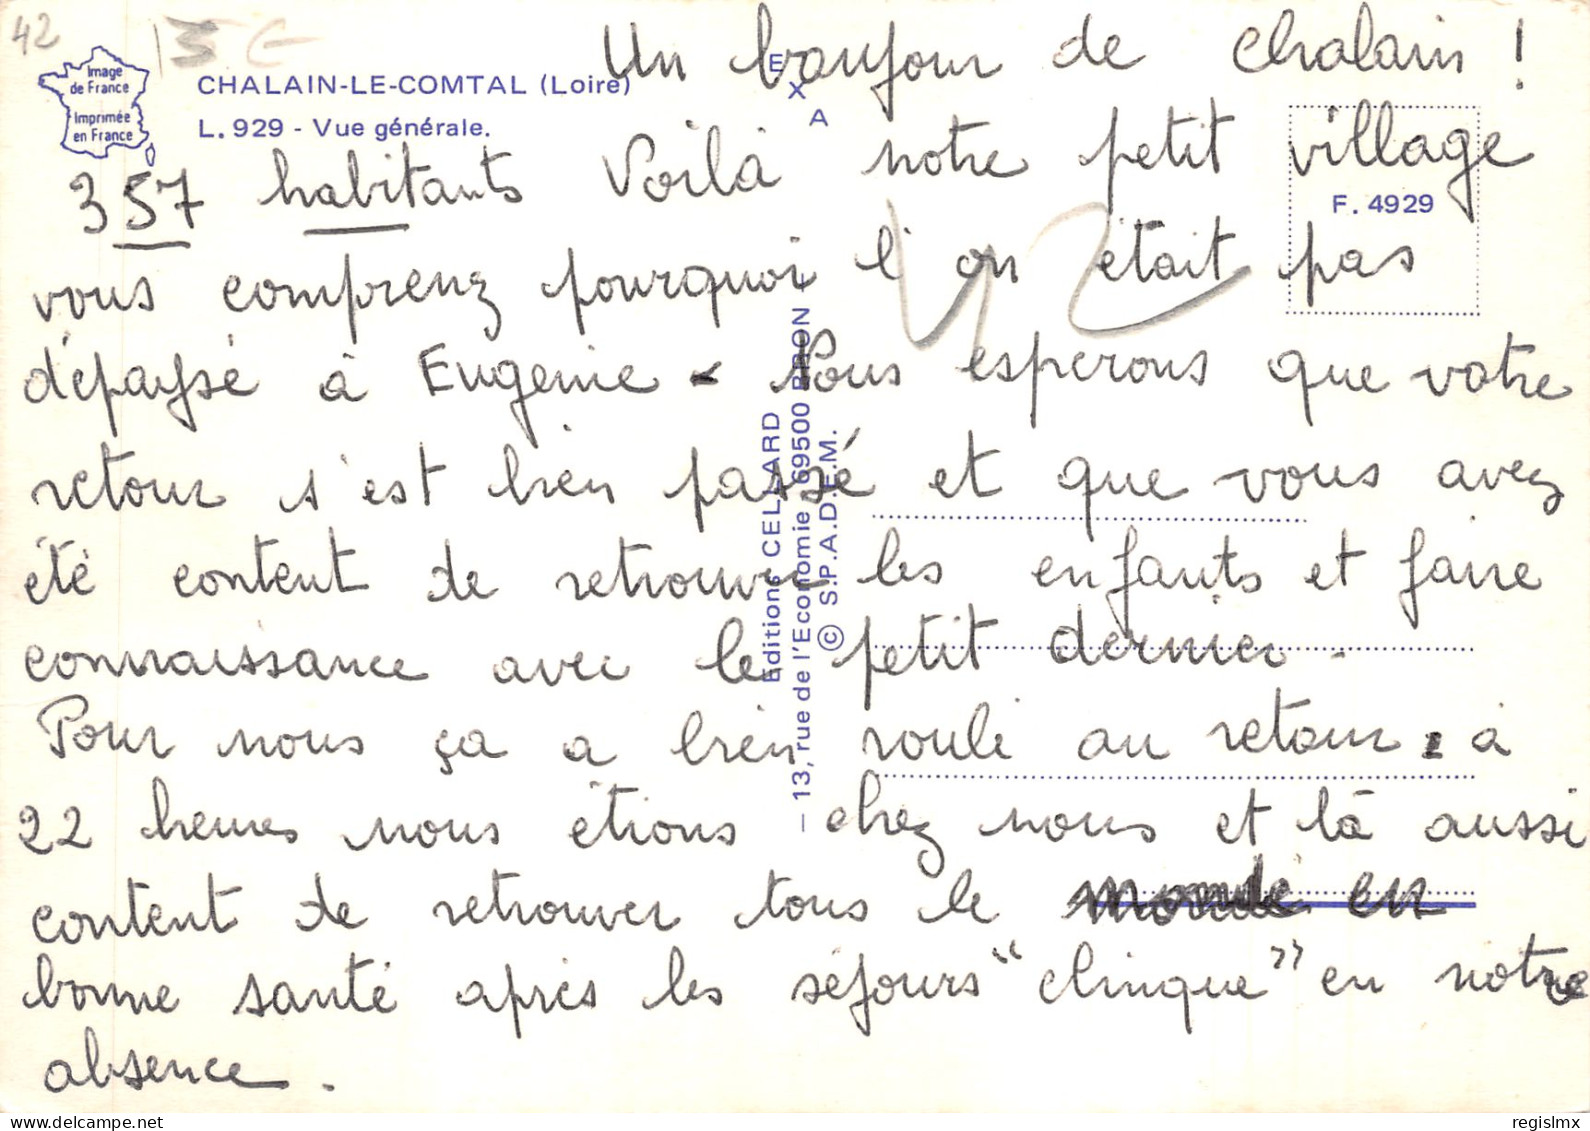 42
15 €
Un bonjour de Chalain !
Image
de France
Imprimée
en France
CHALAIN-LE-COMTAL (Loire)
L. 929 - Vue générale.
E
X
A
F. 4929
357 habitants Voilà notre petit village
vous comprenz pourquoi l'on était pas
dépaysé à Eugenie - Nous esperons que votre
retour s'est bien passé et que vous avez
été content de retrouver les enfants et faire
connaissance avec le petit dernier.
Pour nous ça a bien roulé au retour : à
22 heures nous étions chez nous et là aussi
content de retrouver tous le monde en
bonne santé après les séjours "clinique" en notre
absence.
42
Editions CELLARD
— 13, rue de l'Economie 69500 BRON
© S.P.A.D.E.M.
regislmx